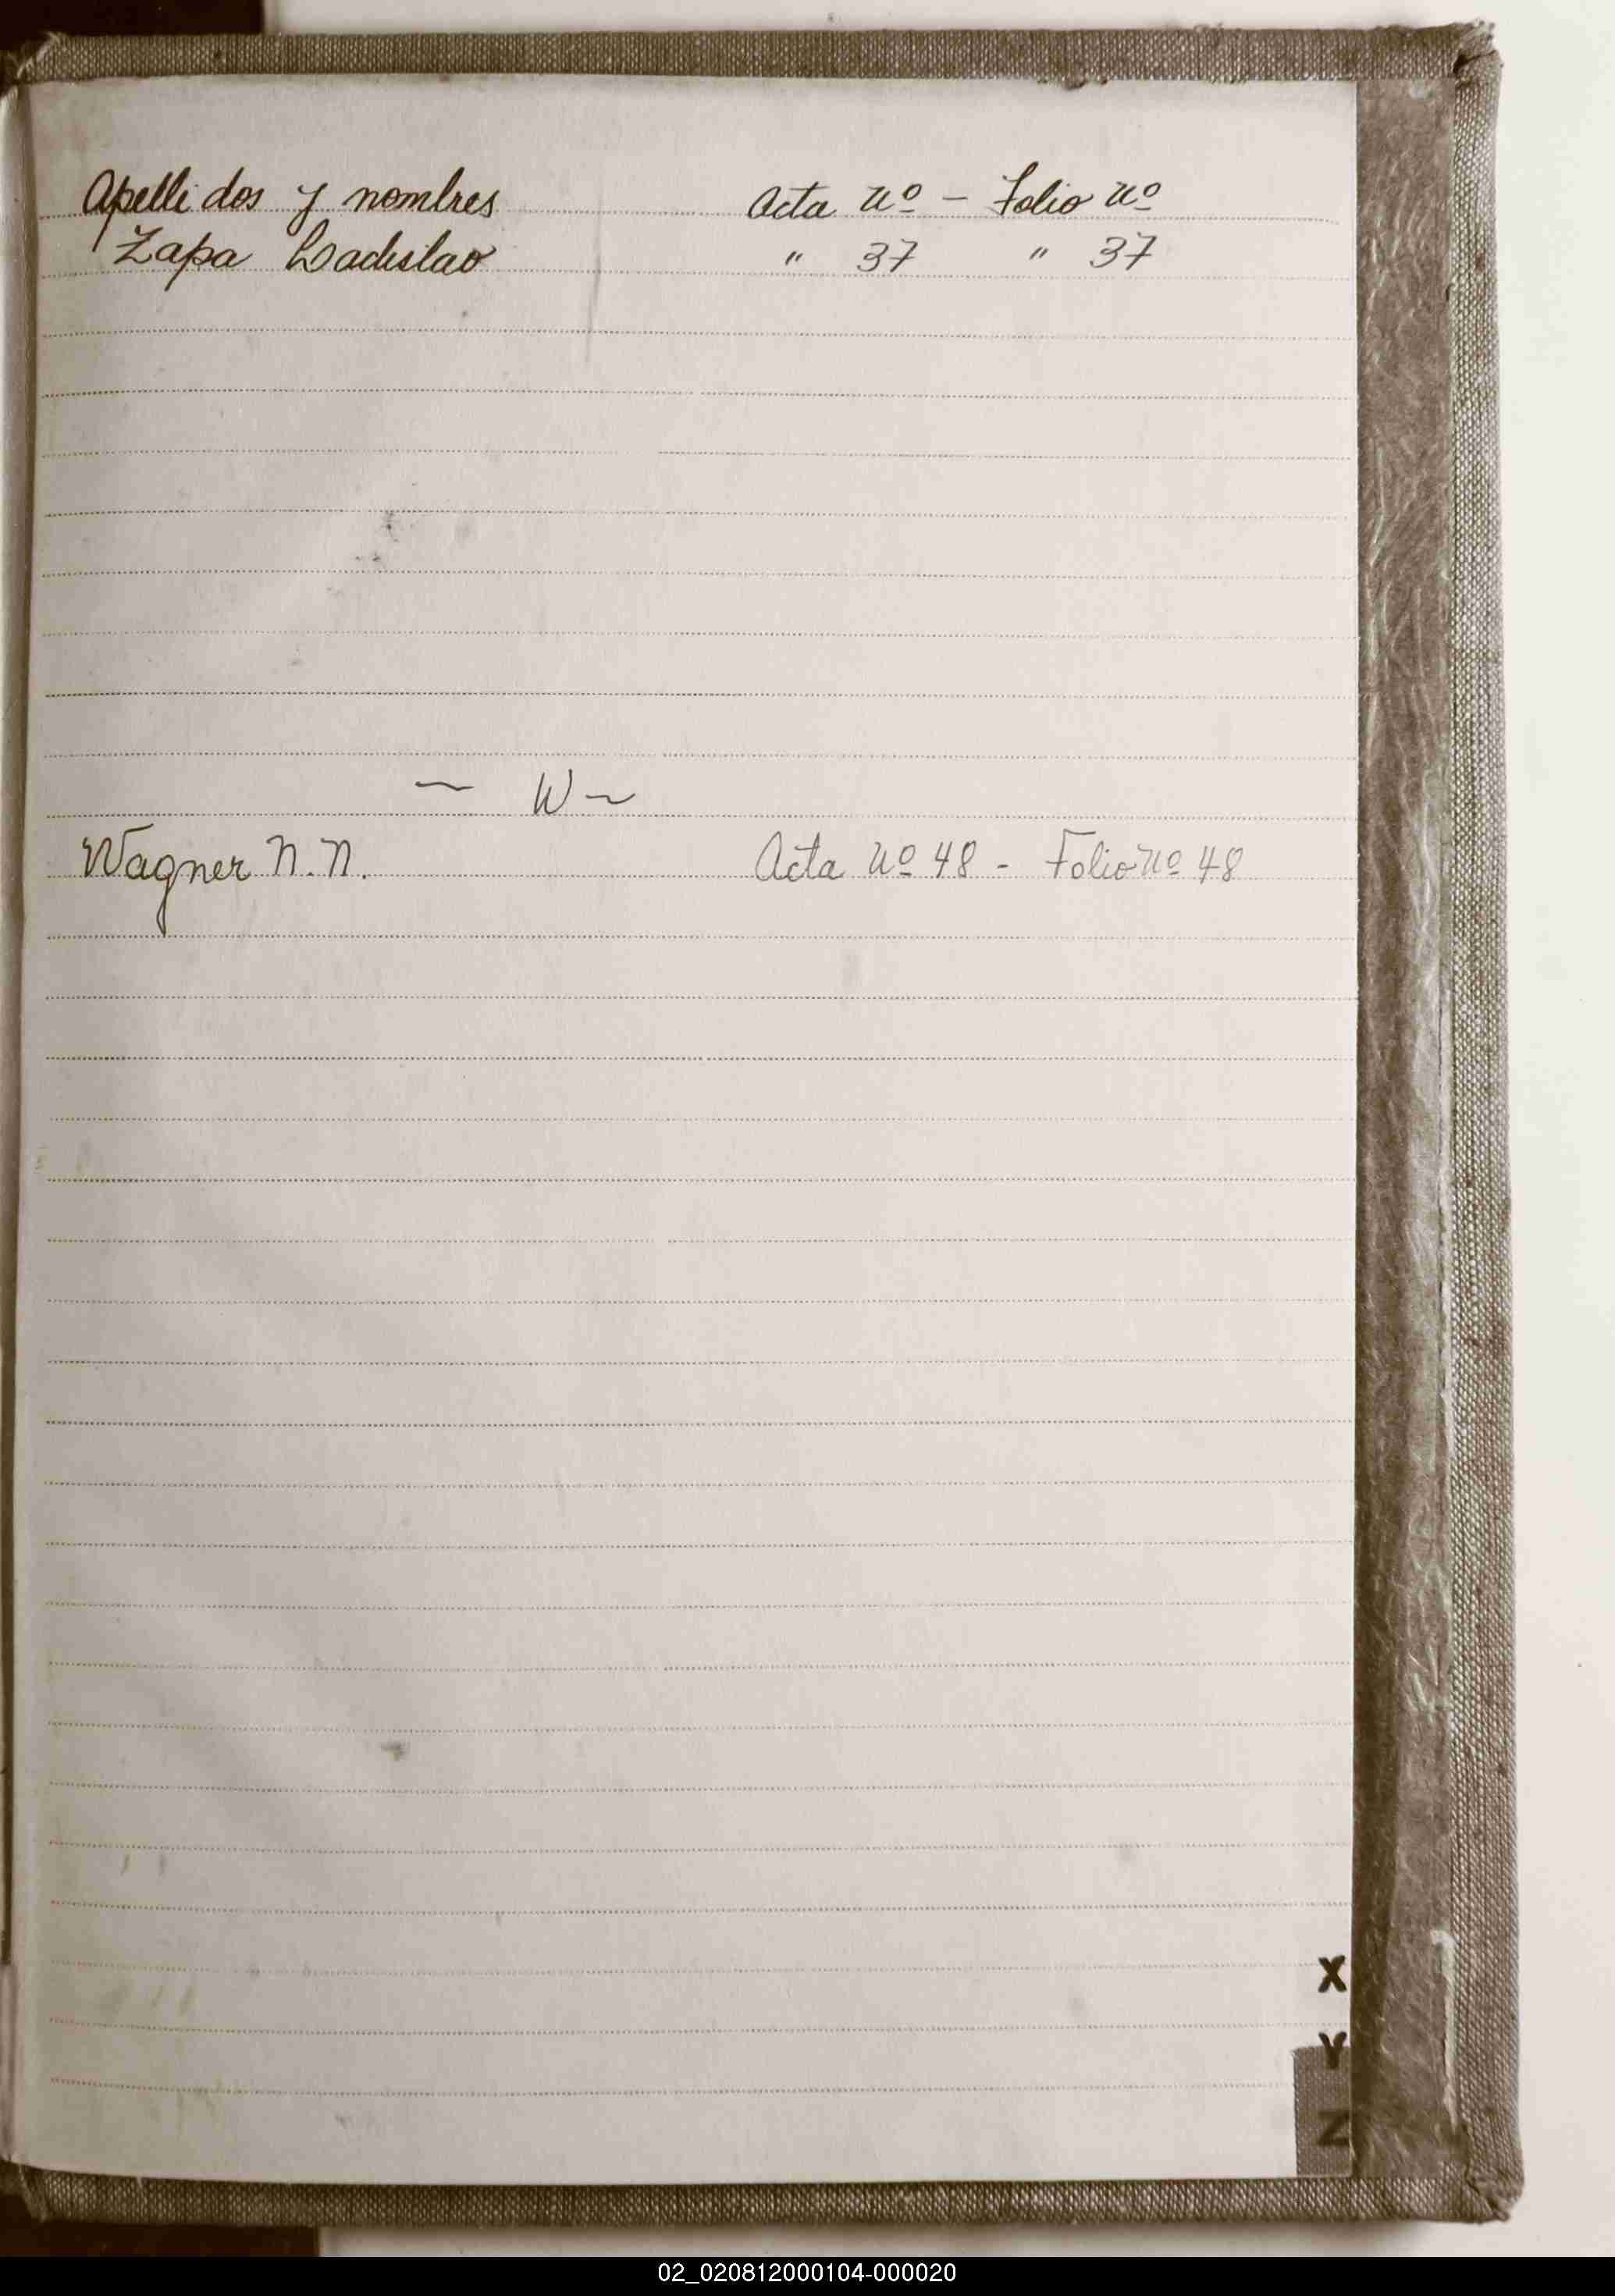 Apellidos y nombres Acta Nº - Folio Nº
Zapa Ladislao " 37 " 37
— W ~
Wagner N.N. Acta Nº 48 - Folio Nº 48
X
Y
Z
02_020812000104-000020